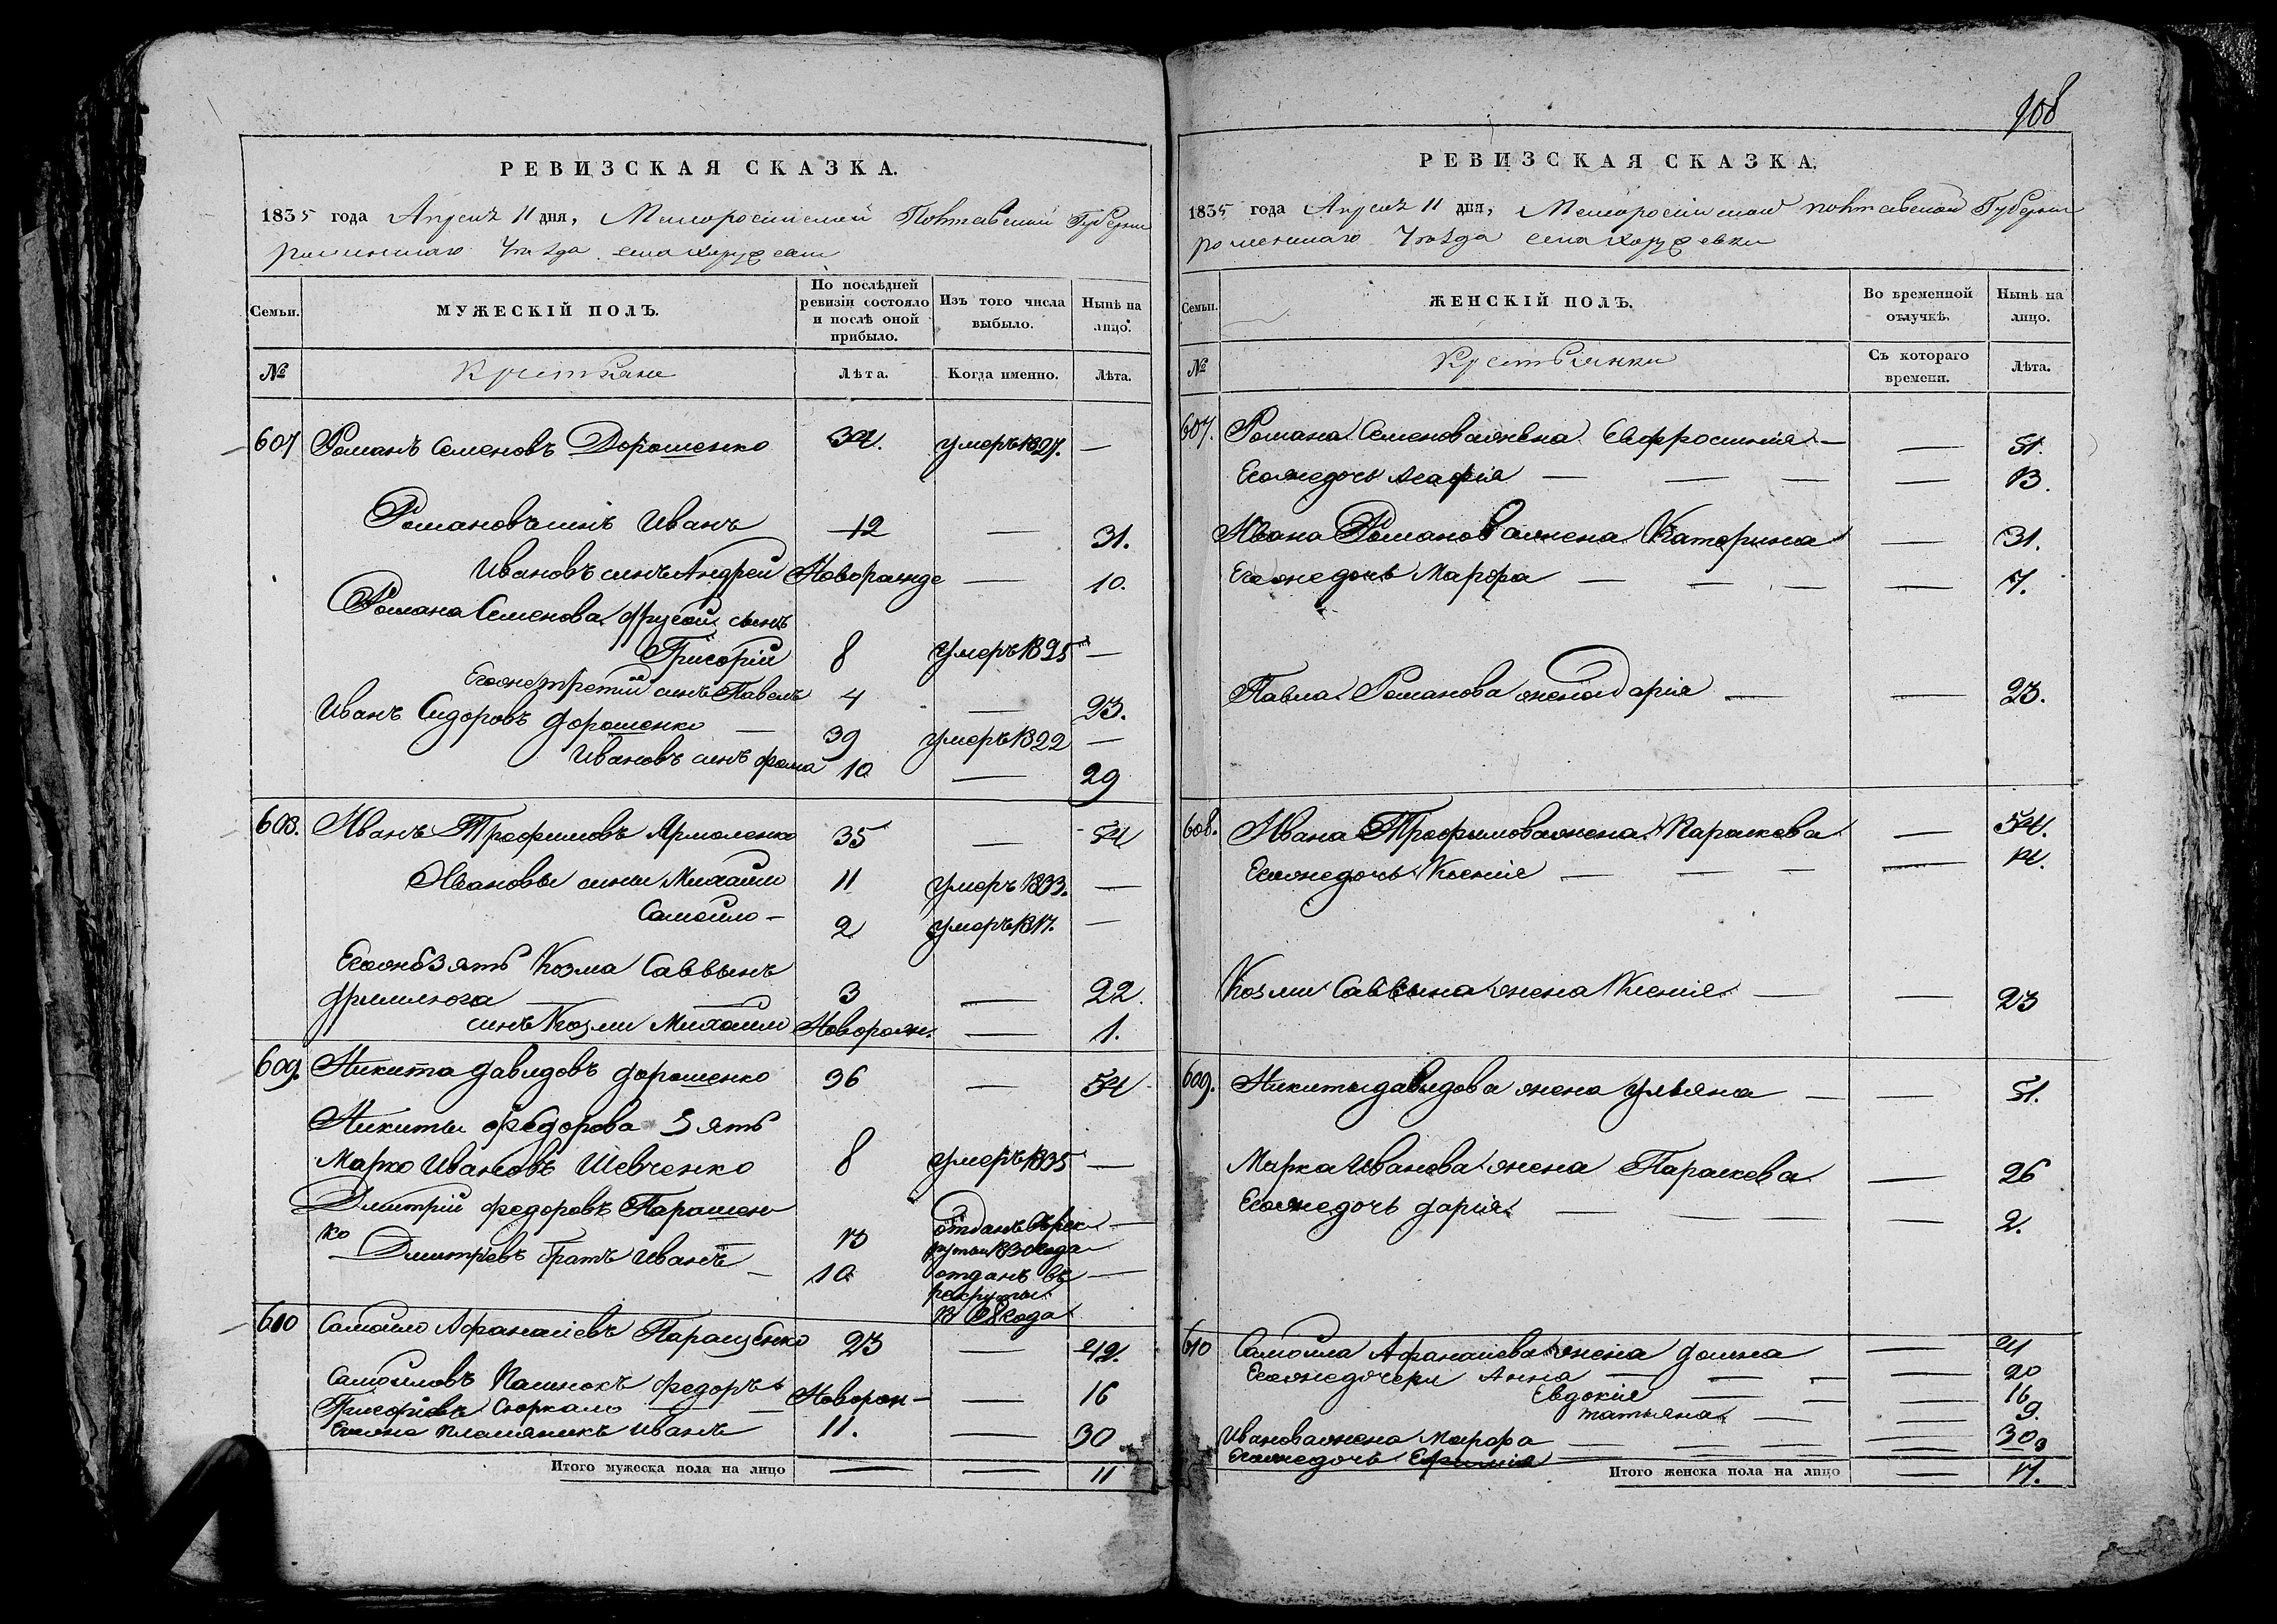 РЕВИЗСКАЯ СКАЗКА.
1835 года Апреля 11 дня, Малоросийской Полтавской Губернии
роменскаго Уезда села Коружевки
Семьи.
МУЖЕСКІЙ ПОЛЪ.
По послѣдней ревизіи состояло и послѣ оной прибыло.
Изъ того числа выбыло.
Нынѣ на лицо.
№
Крестьяне
Лѣта.
Когда именно.
Лѣта.
607 Романъ Семеновъ Дорошенко 32. умеръ 1827. —
Романовъ синъ Иванъ 12 — 31.
Ивановъ синъ Андрей Новорожде — 10.
Романа Семенова другой сынъ
Григорій 8 умеръ 1825 —
Егоже третій синъ Павелъ 4 — 23.
Иванъ Сидоровъ Дорошенко — 39 умеръ 1822 —
Ивановъ синъ фома 10 — 29
608. Иванъ Трофимовъ Ярмоленко 35 — 54
Ивановы сины Михаилъ 11 умеръ 1833. —
Самойло — 2 умеръ 1817. —
Егожъ зять Козма Саввинъ
3 — 22.
синъ Козми Михаилъ Новорож. — 1.
609. Никита Давидовъ Дорошенко 36 — 54
Никиты федорова зять
Марко Ивановъ Шевченко 8 умеръ 1835 —
Дмитрій федоровъ Парашен
ко 13 отданъ в рек —
руты 1830 года
Дмитріевъ братъ Иванъ — 10 отданъ въ —
рекруты
года
610 Самойло Афанасіевъ Паращенко 23 — 42.
Самойловъ федоръ Новорож — — 16
Григоріевъ
Егоже племяникъ Иванъ 11. — 30
Итого мужеска пола на лицо — — 11
908
РЕВИЗСКАЯ СКАЗКА.
1835 года Апреля 11 дня, Малоросийской Полтавской Губернии
роменскаго Уезда села Коружевки
Семьи.
ЖЕНСКІЙ ПОЛЪ.
Во временной отлучкѣ.
Нынѣ на лицо.
№
Крестьянки
Съ котораго времени.
Лѣта.
607. Романа Семенова жена Евфросинія — — 51.
Егоже дочь Агафія — — — — 13.
Ивана Романова жена Катерина — 31.
Егоже дочь Марфа — — — — 7.
Павла Романова жена Дарія — — 23.
608. Ивана Трофымова жена Параскева — 54.
Егоже дочь Ксенія — — — — 14.
Козми Саввина жена Ксенія — — 23
609. Никиты Давидова жена Ульяна — — 51.
Марка Иванова жена Параскева — 26
Егоже дочь Дарія. — — — — 2.
610 Самойла Афанасіева жена Домна — 41
Егоже дочери Анна — — — — 20
Евдокія — — — 16
татьяна — — 9.
Иванова жена Марфа — — — — 30
Егоже дочь Ефимія — — — 3
Итого женска пола на лицо — 17.